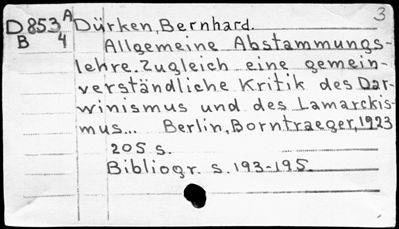 3
D853 A Dürken, Bernhard.
B 4 Allgemeine Abstammungs-
lehre. Zugleich eine gemein-
verständliche Kritik des Dar-
winismus und des Lamarckis-
mus... Berlin, Borntraeger, 1923
205 s.
Bibliogr. s. 193-195.